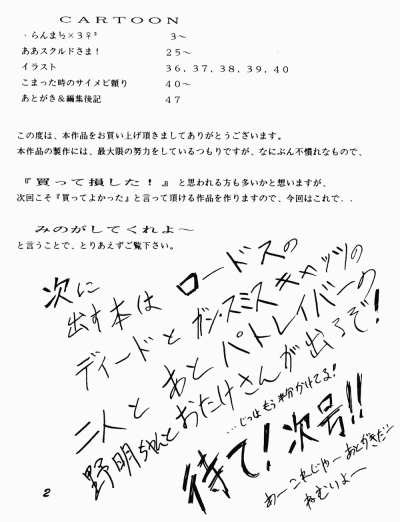 CARTOON
・らんま½×3♀³ 3～
ああスクルドさま！ 25～
イラスト 36，37，38，39，40
こまった時のサイメビ頼り 40～
あとがき＆編集後記 47
この度は、本作品をお買い上げ頂きましてありがとうございます。
本作品の製作には、最大限の努力をしているつもりですが、なにぶん不慣れなもので、
『買って損した！』と思われる方も多いかと想いますが、
次回こそ『買ってよかった』と言って頂ける作品を作りますので、今回はこれで．．
みのがしてくれよ～
と言うことで、とりあえずご覧下さい。
次に
出す本は ロードスの
ディードと ガン・スミスキャッツの
二人と あと パトレイバーの
野明ちゃんとおたけさんが出るぞ！
…じつはもう半分かけてる！
待て！次号!!
あーこれじゃーあとがきだー
ねむいよー
2